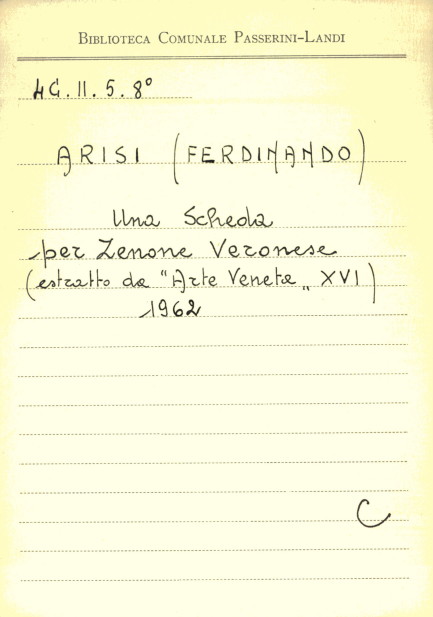 BIBLIOTECA COMUNALE PASSERINI-LANDI
4G.II.5.8°
ARISI (FERDINANDO)
Una Scheda
per Zenone Veronese
(estratto da "Arte Veneta„ XVI)
1962
C